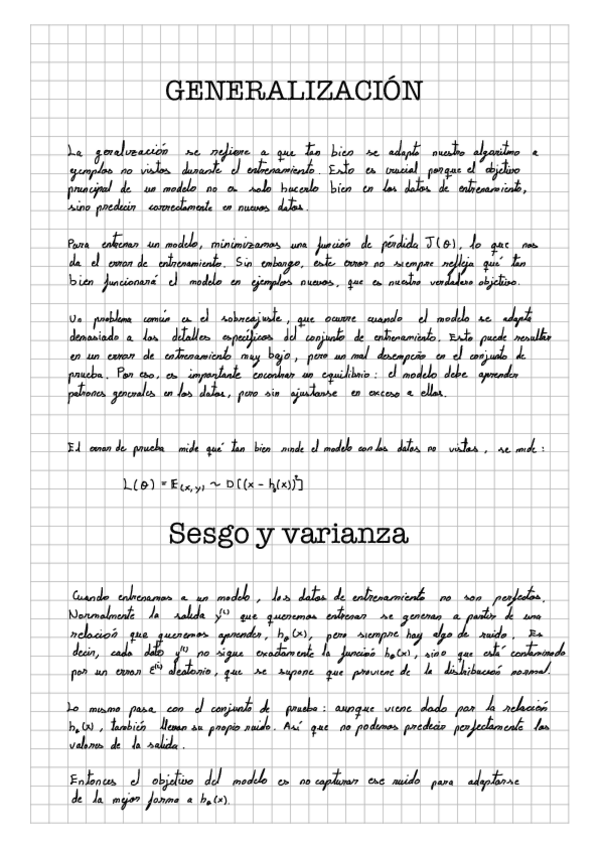 GENERALIZACIÓN
La geralización se refiere a que tan bien se adapta nuestro algoritmo a
ejemplos no vistos durante el entrenamiento. Esto es crucial porque el objetivo
principal de un modelo no es solo hacerlo bien en los datos de entrenamiento,
sino predecir correctamente en nuevos datos.
Para entrenar un modelo, minimizamos una función de pérdida J(θ), lo que nos
da el error de entrenamiento. Sin embargo, este error no siempre refleja qué tan
bien funcionará el modelo en ejemplos nuevos, que es nuestro verdadero objetivo.
Un problema común es el sobreajuste, que ocurre cuando el modelo se adapta
demasiado a los detalles específicos del conjunto de entrenamiento. Esto puede resultar
en un error de entrenamiento muy bajo, pero un mal desempeño en el conjunto de
prueba. Por eso, es importante encontrar un equilibrio: el modelo debe aprender
patrones generales en los datos, pero sin ajustarse en exceso a ellos.
El error de prueba mide qué tan bien rinde el modelo con los datos no vistos, se mide:
L(θ) = E(x,y) ~ D[(x - hθ(x))²]
Sesgo y varianza
Cuando entrenamos a un modelo, los datos de entrenamiento no son perfectos.
Normalmente la salida y⁽ⁱ⁾ que queremos entrenar se generan a partir de una
relación que queremos aprender, hθ(x), pero siempre hay algo de ruido. Es
decir, cada dato y⁽ⁱ⁾ no sigue exactamente la función hθ(x), sino que está contaminado
por un error E⁽ⁱ⁾ aleatorio, que se supone que proviene de la distribución normal.
Lo mismo pasa con el conjunto de prueba: aunque viene dado por la relación
hθ(x), también llevan su propio ruido. Así que no podemos predecir perfectamente los
valores de la salida.
Entonces el objetivo del modelo es no capturar ese ruido para adaptarse
de la mejor forma a hθ(x).